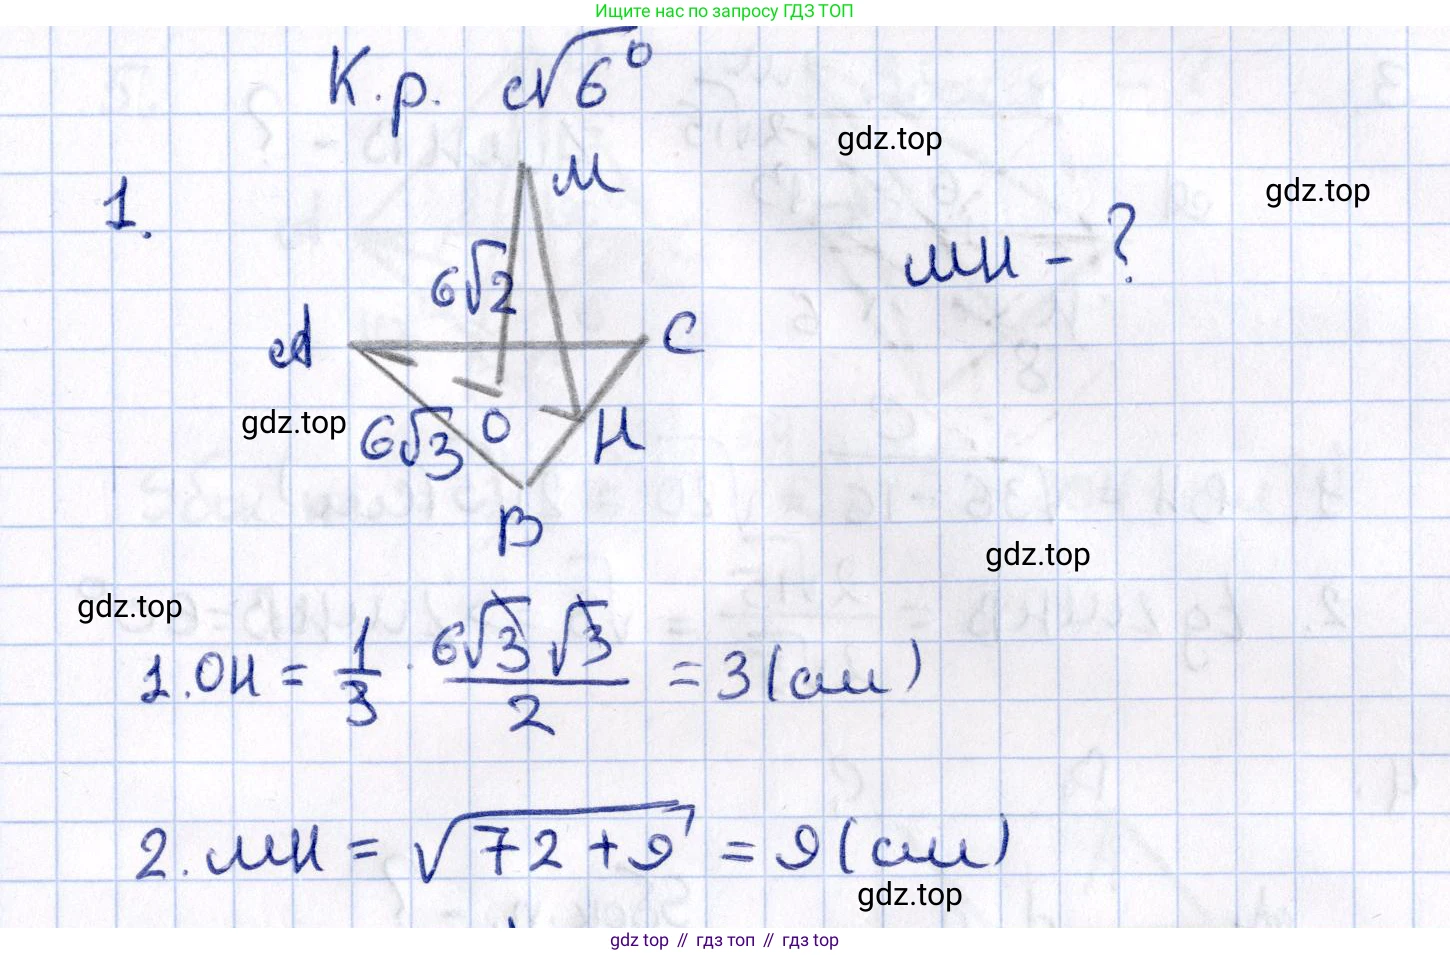 Ищите нас по запросу ГДЗ ТОП
К.р. с√6⁰
gdz.top
М
gdz.top
1.
МН - ?
6√2
А
С
gdz.top
6√3
О
Н
В
gdz.top
gdz.top
1. ОН = 1/3 · 6√3 √3 / 2 = 3 (см)
2. МН = √72 + 9 = 9 (см)
gdz.top
gdz top // гдз топ // гдз top